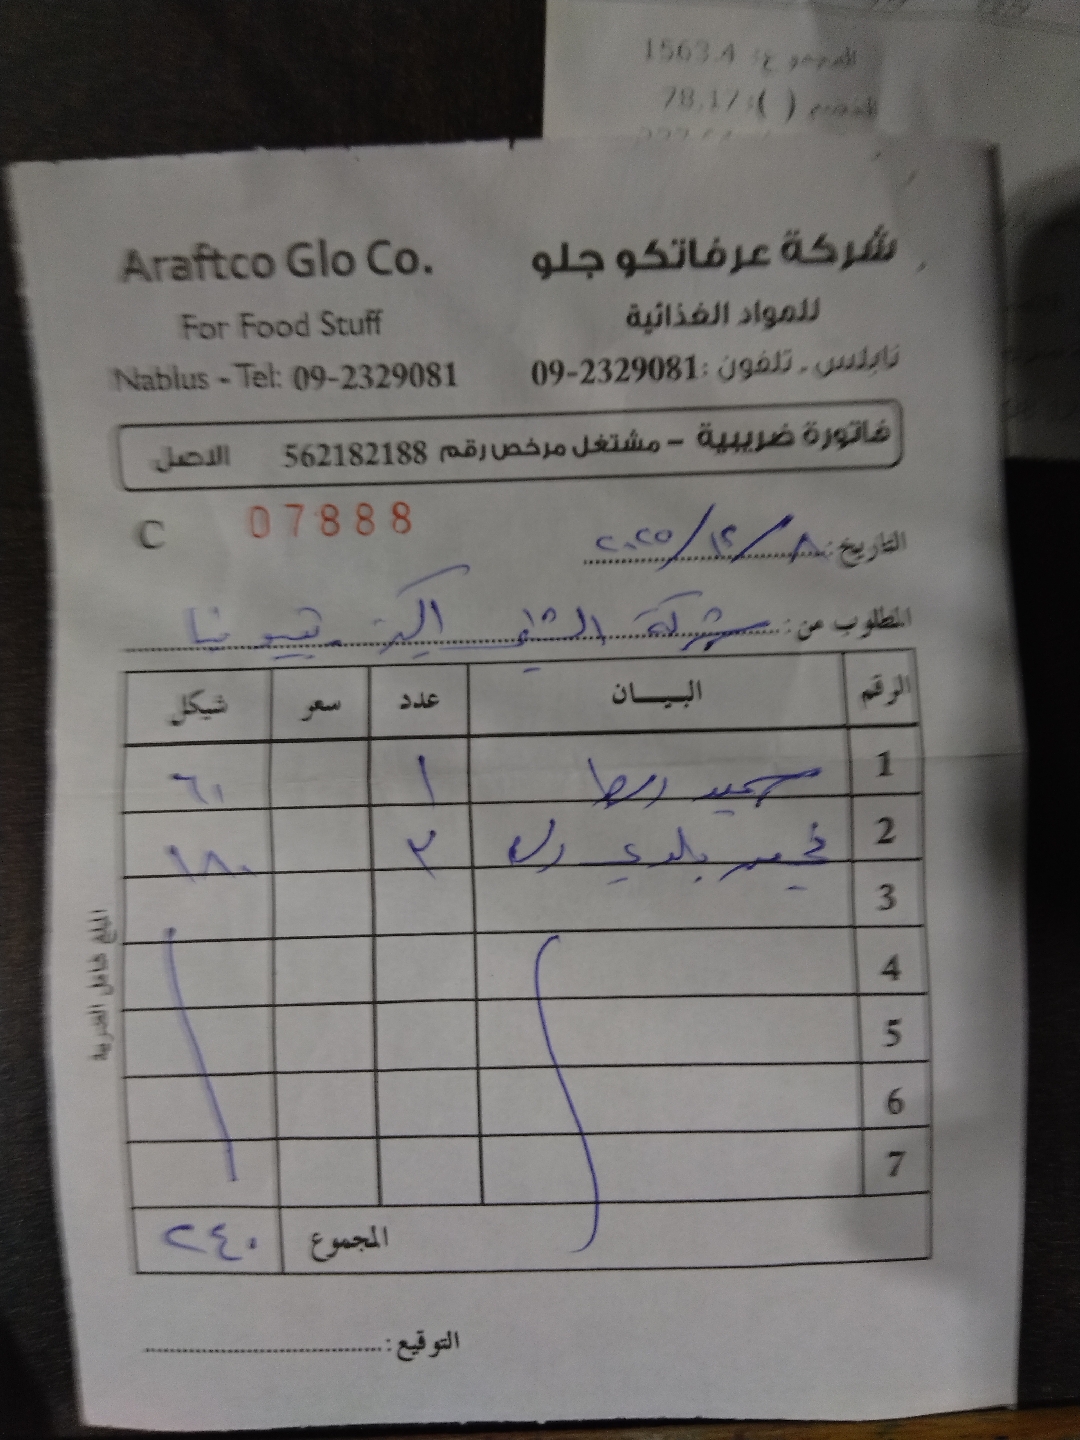 المجموع: 1563.4
الخصم ( ): 78.17
Araftco Glo Co.
شركة عرفاتكو جلو
For Food Stuff
للمواد الغذائية
Nablus - Tel: 09-2329081
نابلس - تلفون: 09-2329081
فاتورة ضريبية - مشتغل مرخص رقم 562182188 الاصل
C 07888
التاريخ: ٨/١٢/٢٠٢٥
المطلوب من: شركة
الرقم البيـــان عدد سعر شيكل
1 ١ ٦٠
2 بلدي ٣ ١٨٠
3
4
5
6
7
المجموع ٢٤٠
المبلغ شامل الضريبة
التوقيع: